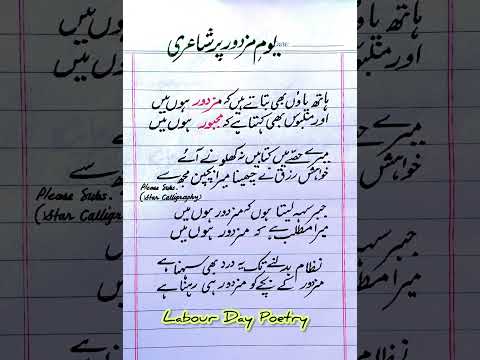 یومِ مزدور پر شاعری
ہاتھ پاوں بھی بتاتے ہیں کہ مزدور ہوں میں
اور ملبوس بھی کہتا ہے کہ مجبور ہوں میں
میرے حصے میں کتابیں نہ کھلونے آئے
خواہشِ رزق نے چھینا میرا بچپن مجھ سے
Please Subs.
(Star Calligraphy)
Please Subs.
(Star Calligraphy)
جبر سہہ لیتا ہوں کہ مزدور ہوں میں
میرا مطلب ہے کہ مزدور ہوں میں
نظام بدلنے تک یہ درد بھی سہنا ہے
مزدور کے بچے کو مزدور ہی رہنا ہے
Labour Day Poetry